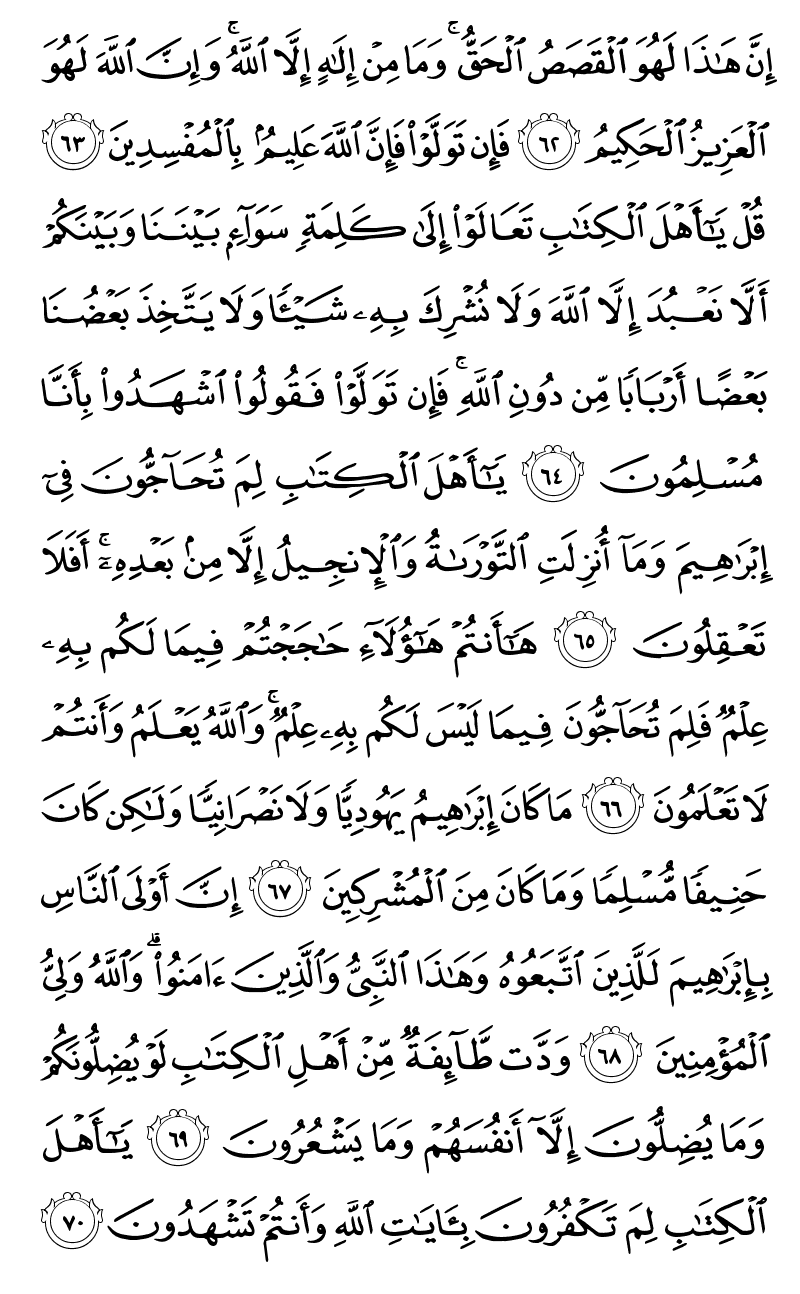 إِنَّ هَٰذَا لَهُوَ ٱلْقَصَصُ ٱلْحَقُّ ۚ وَمَا مِنْ إِلَٰهٍ إِلَّا ٱللَّهُ ۚ وَإِنَّ ٱللَّهَ لَهُوَ
ٱلْعَزِيزُ ٱلْحَكِيمُ ٦٢ فَإِن تَوَلَّوْا۟ فَإِنَّ ٱللَّهَ عَلِيمٌۢ بِٱلْمُفْسِدِينَ ٦٣
قُلْ يَٰٓأَهْلَ ٱلْكِتَٰبِ تَعَالَوْا۟ إِلَىٰ كَلِمَةٍ سَوَآءٍۭ بَيْنَنَا وَبَيْنَكُمْ
أَلَّا نَعْبُدَ إِلَّا ٱللَّهَ وَلَا نُشْرِكَ بِهِۦ شَيْـًٔا وَلَا يَتَّخِذَ بَعْضُنَا
بَعْضًا أَرْبَابًا مِّن دُونِ ٱللَّهِ ۚ فَإِن تَوَلَّوْا۟ فَقُولُوا۟ ٱشْهَدُوا۟ بِأَنَّا
مُسْلِمُونَ ٦٤ يَٰٓأَهْلَ ٱلْكِتَٰبِ لِمَ تُحَآجُّونَ فِىٓ
إِبْرَٰهِيمَ وَمَآ أُنزِلَتِ ٱلتَّوْرَىٰةُ وَٱلْإِنجِيلُ إِلَّا مِنۢ بَعْدِهِۦٓ ۚ أَفَلَا
تَعْقِلُونَ ٦٥ هَٰٓأَنتُمْ هَٰٓؤُلَآءِ حَٰجَجْتُمْ فِيمَا لَكُم بِهِۦ
عِلْمٌ فَلِمَ تُحَآجُّونَ فِيمَا لَيْسَ لَكُم بِهِۦ عِلْمٌ ۚ وَٱللَّهُ يَعْلَمُ وَأَنتُمْ
لَا تَعْلَمُونَ ٦٦ مَا كَانَ إِبْرَٰهِيمُ يَهُودِيًّا وَلَا نَصْرَانِيًّا وَلَٰكِن كَانَ
حَنِيفًا مُّسْلِمًا وَمَا كَانَ مِنَ ٱلْمُشْرِكِينَ ٦٧ إِنَّ أَوْلَى ٱلنَّاسِ
بِإِبْرَٰهِيمَ لَلَّذِينَ ٱتَّبَعُوهُ وَهَٰذَا ٱلنَّبِىُّ وَٱلَّذِينَ ءَامَنُوا۟ ۗ وَٱللَّهُ وَلِىُّ
ٱلْمُؤْمِنِينَ ٦٨ وَدَّت طَّآئِفَةٌ مِّنْ أَهْلِ ٱلْكِتَٰبِ لَوْ يُضِلُّونَكُمْ
وَمَا يُضِلُّونَ إِلَّآ أَنفُسَهُمْ وَمَا يَشْعُرُونَ ٦٩ يَٰٓأَهْلَ
ٱلْكِتَٰبِ لِمَ تَكْفُرُونَ بِـَٔايَٰتِ ٱللَّهِ وَأَنتُمْ تَشْهَدُونَ ٧٠